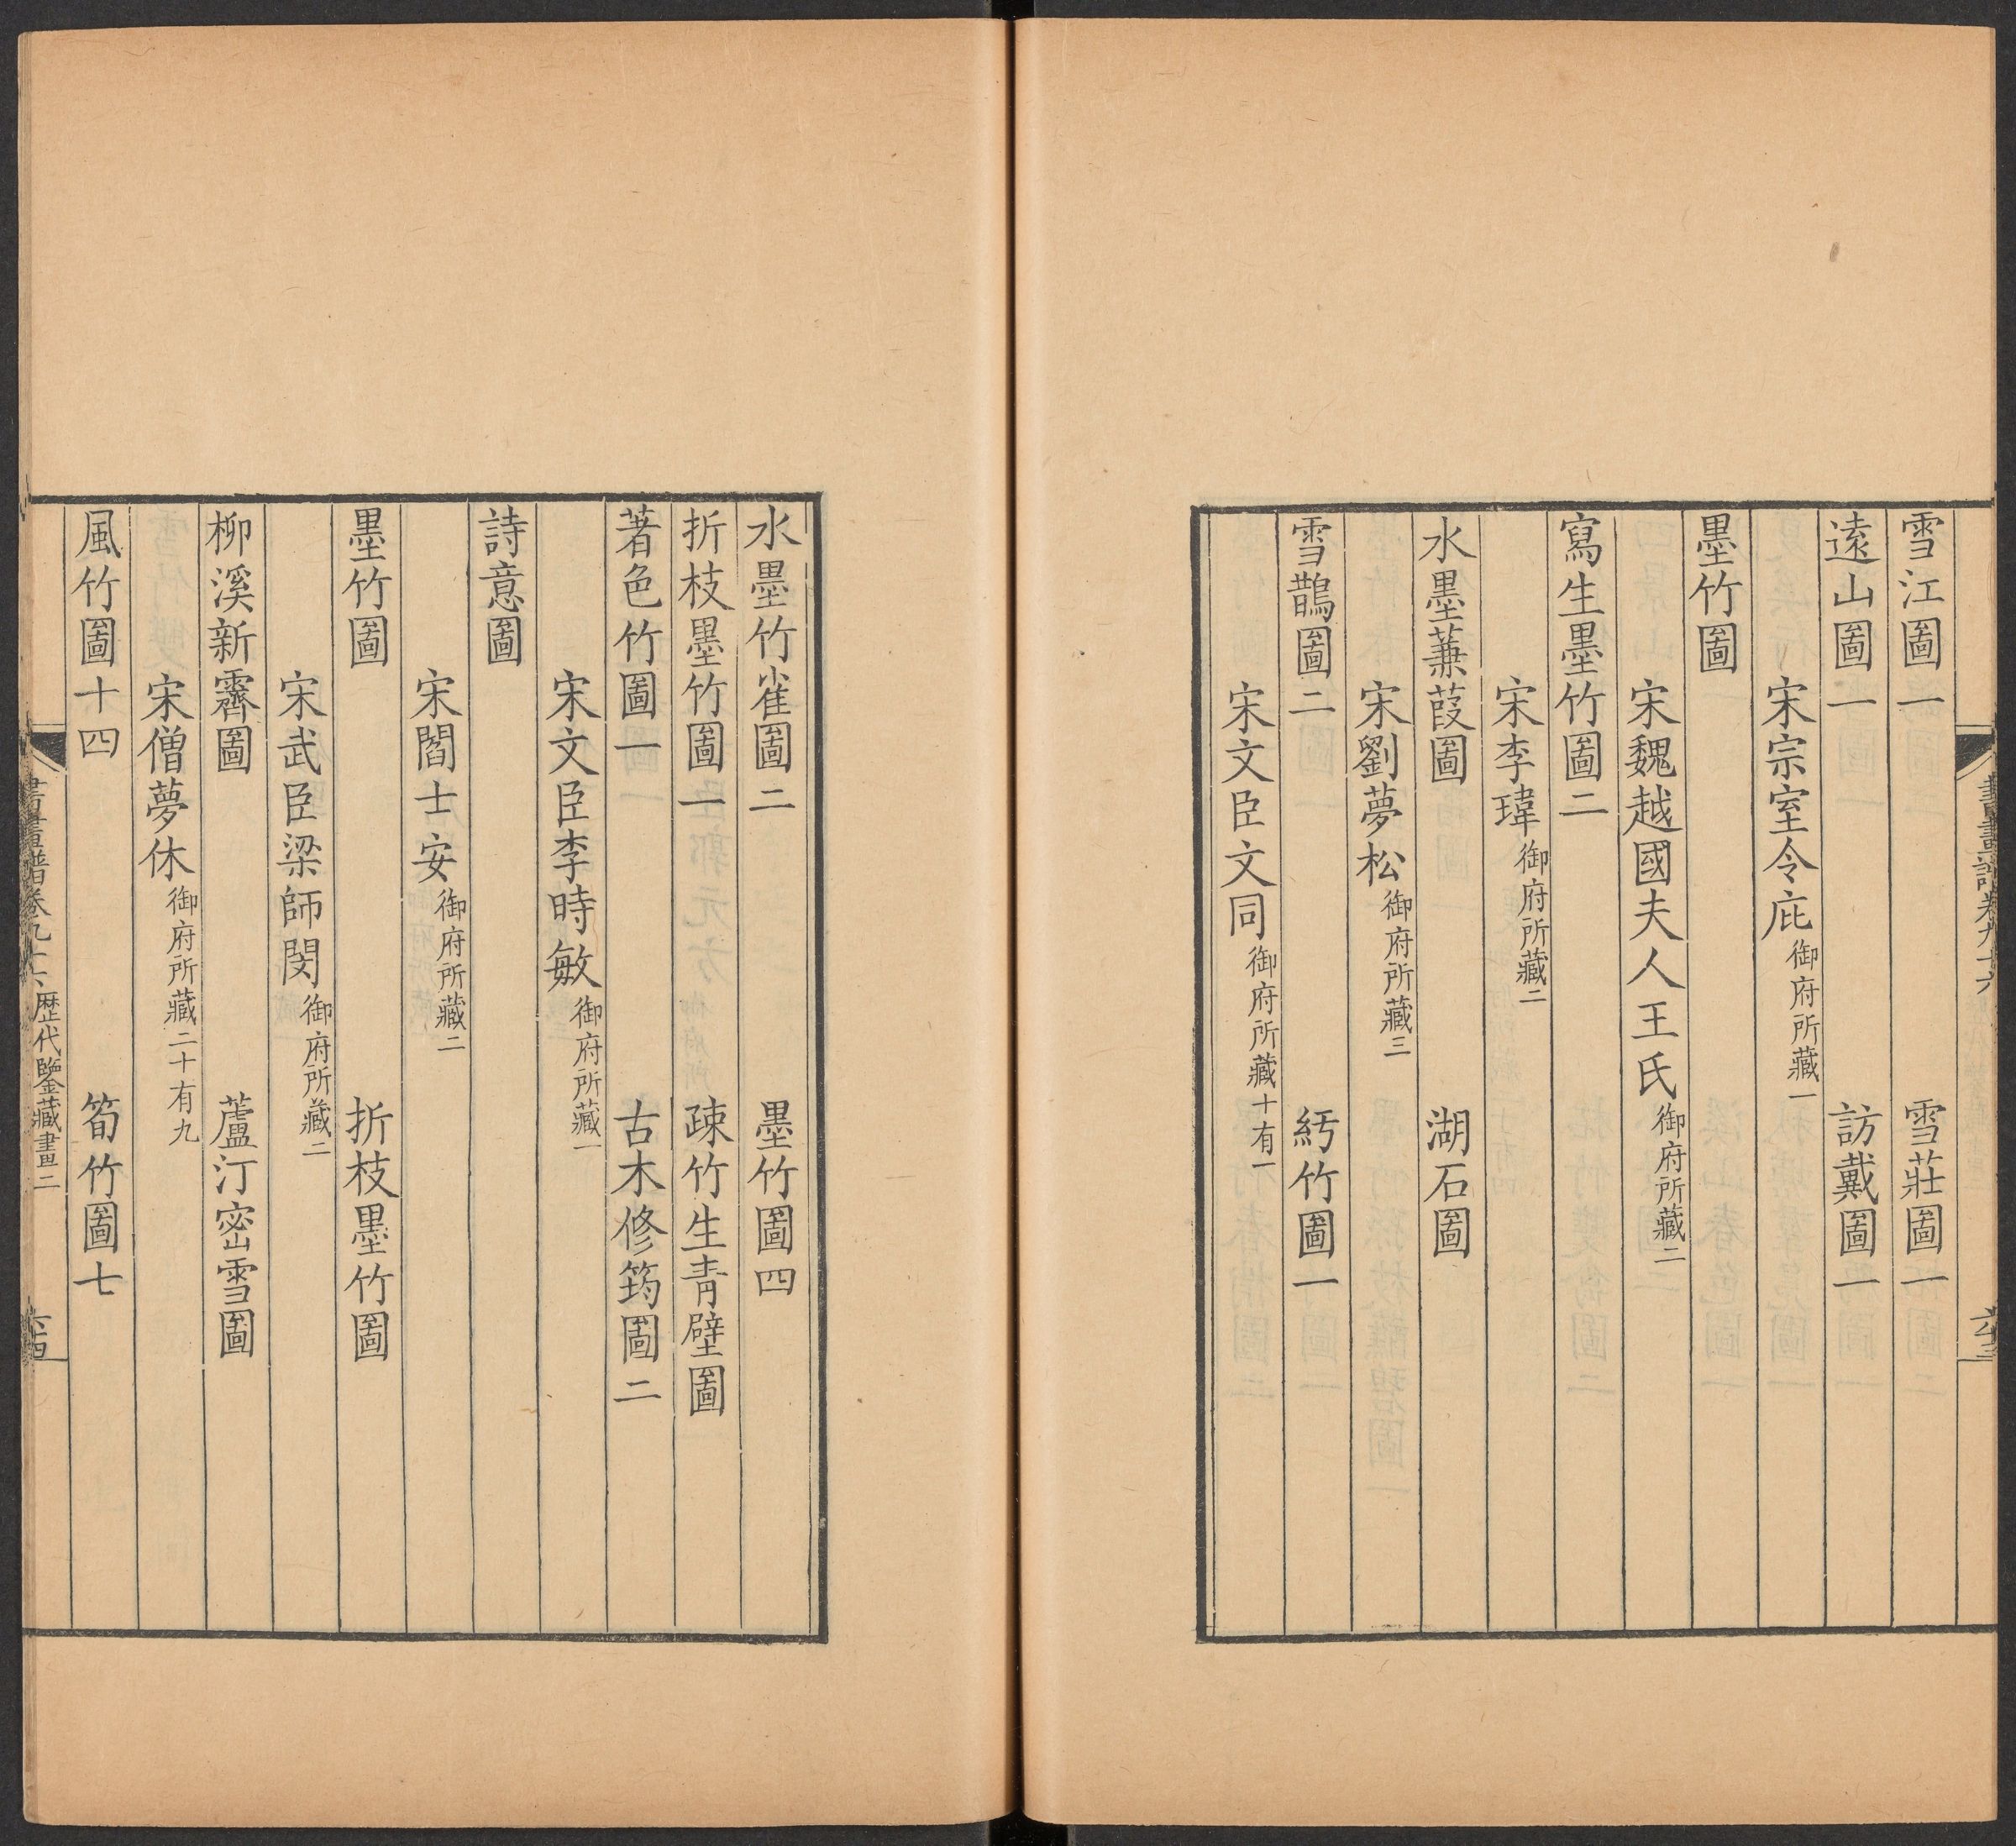 雪江圖一 雪莊圖一
遠山圖一 訪戴圖一
宋宗室令庇御府所藏一
墨竹圖
宋魏越國夫人王氏御府所藏二
寫生墨竹圖二
宋李瑋御府所藏二
水墨蒹葭圖 湖石圖
宋劉夢松御府所藏三
雪鵲圖二 紆竹圖一
宋文臣文同御府所藏十有一
水墨竹雀圖二 墨竹圖四
折枝墨竹圖一 疎竹生青壁圖
著色竹圖一 古木修筠圖二
宋文臣李時敏御府所藏一
詩意圖
宋閻士安御府所藏二
墨竹圖 折枝墨竹圖
宋武臣梁師閔御府所藏二
柳溪新霽圖 蘆汀密雪圖
宋僧夢休御府所藏二十有九
風竹圖十四 筍竹圖七
書畫譜卷九十六 歷代鑒藏畫二 六十四